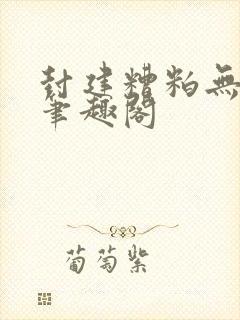 封建糟粕無
筆趣閣
葡萄紫